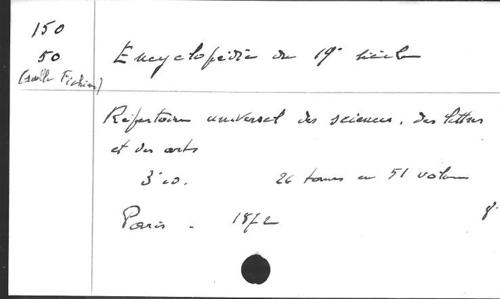 150
50
(salle Fichiers)
Encyclopédie du 19e siècle
Répertoire universel des sciences, des lettres
et des arts
3e éd. 26 tomes en 51 volumes
Paris. 1872